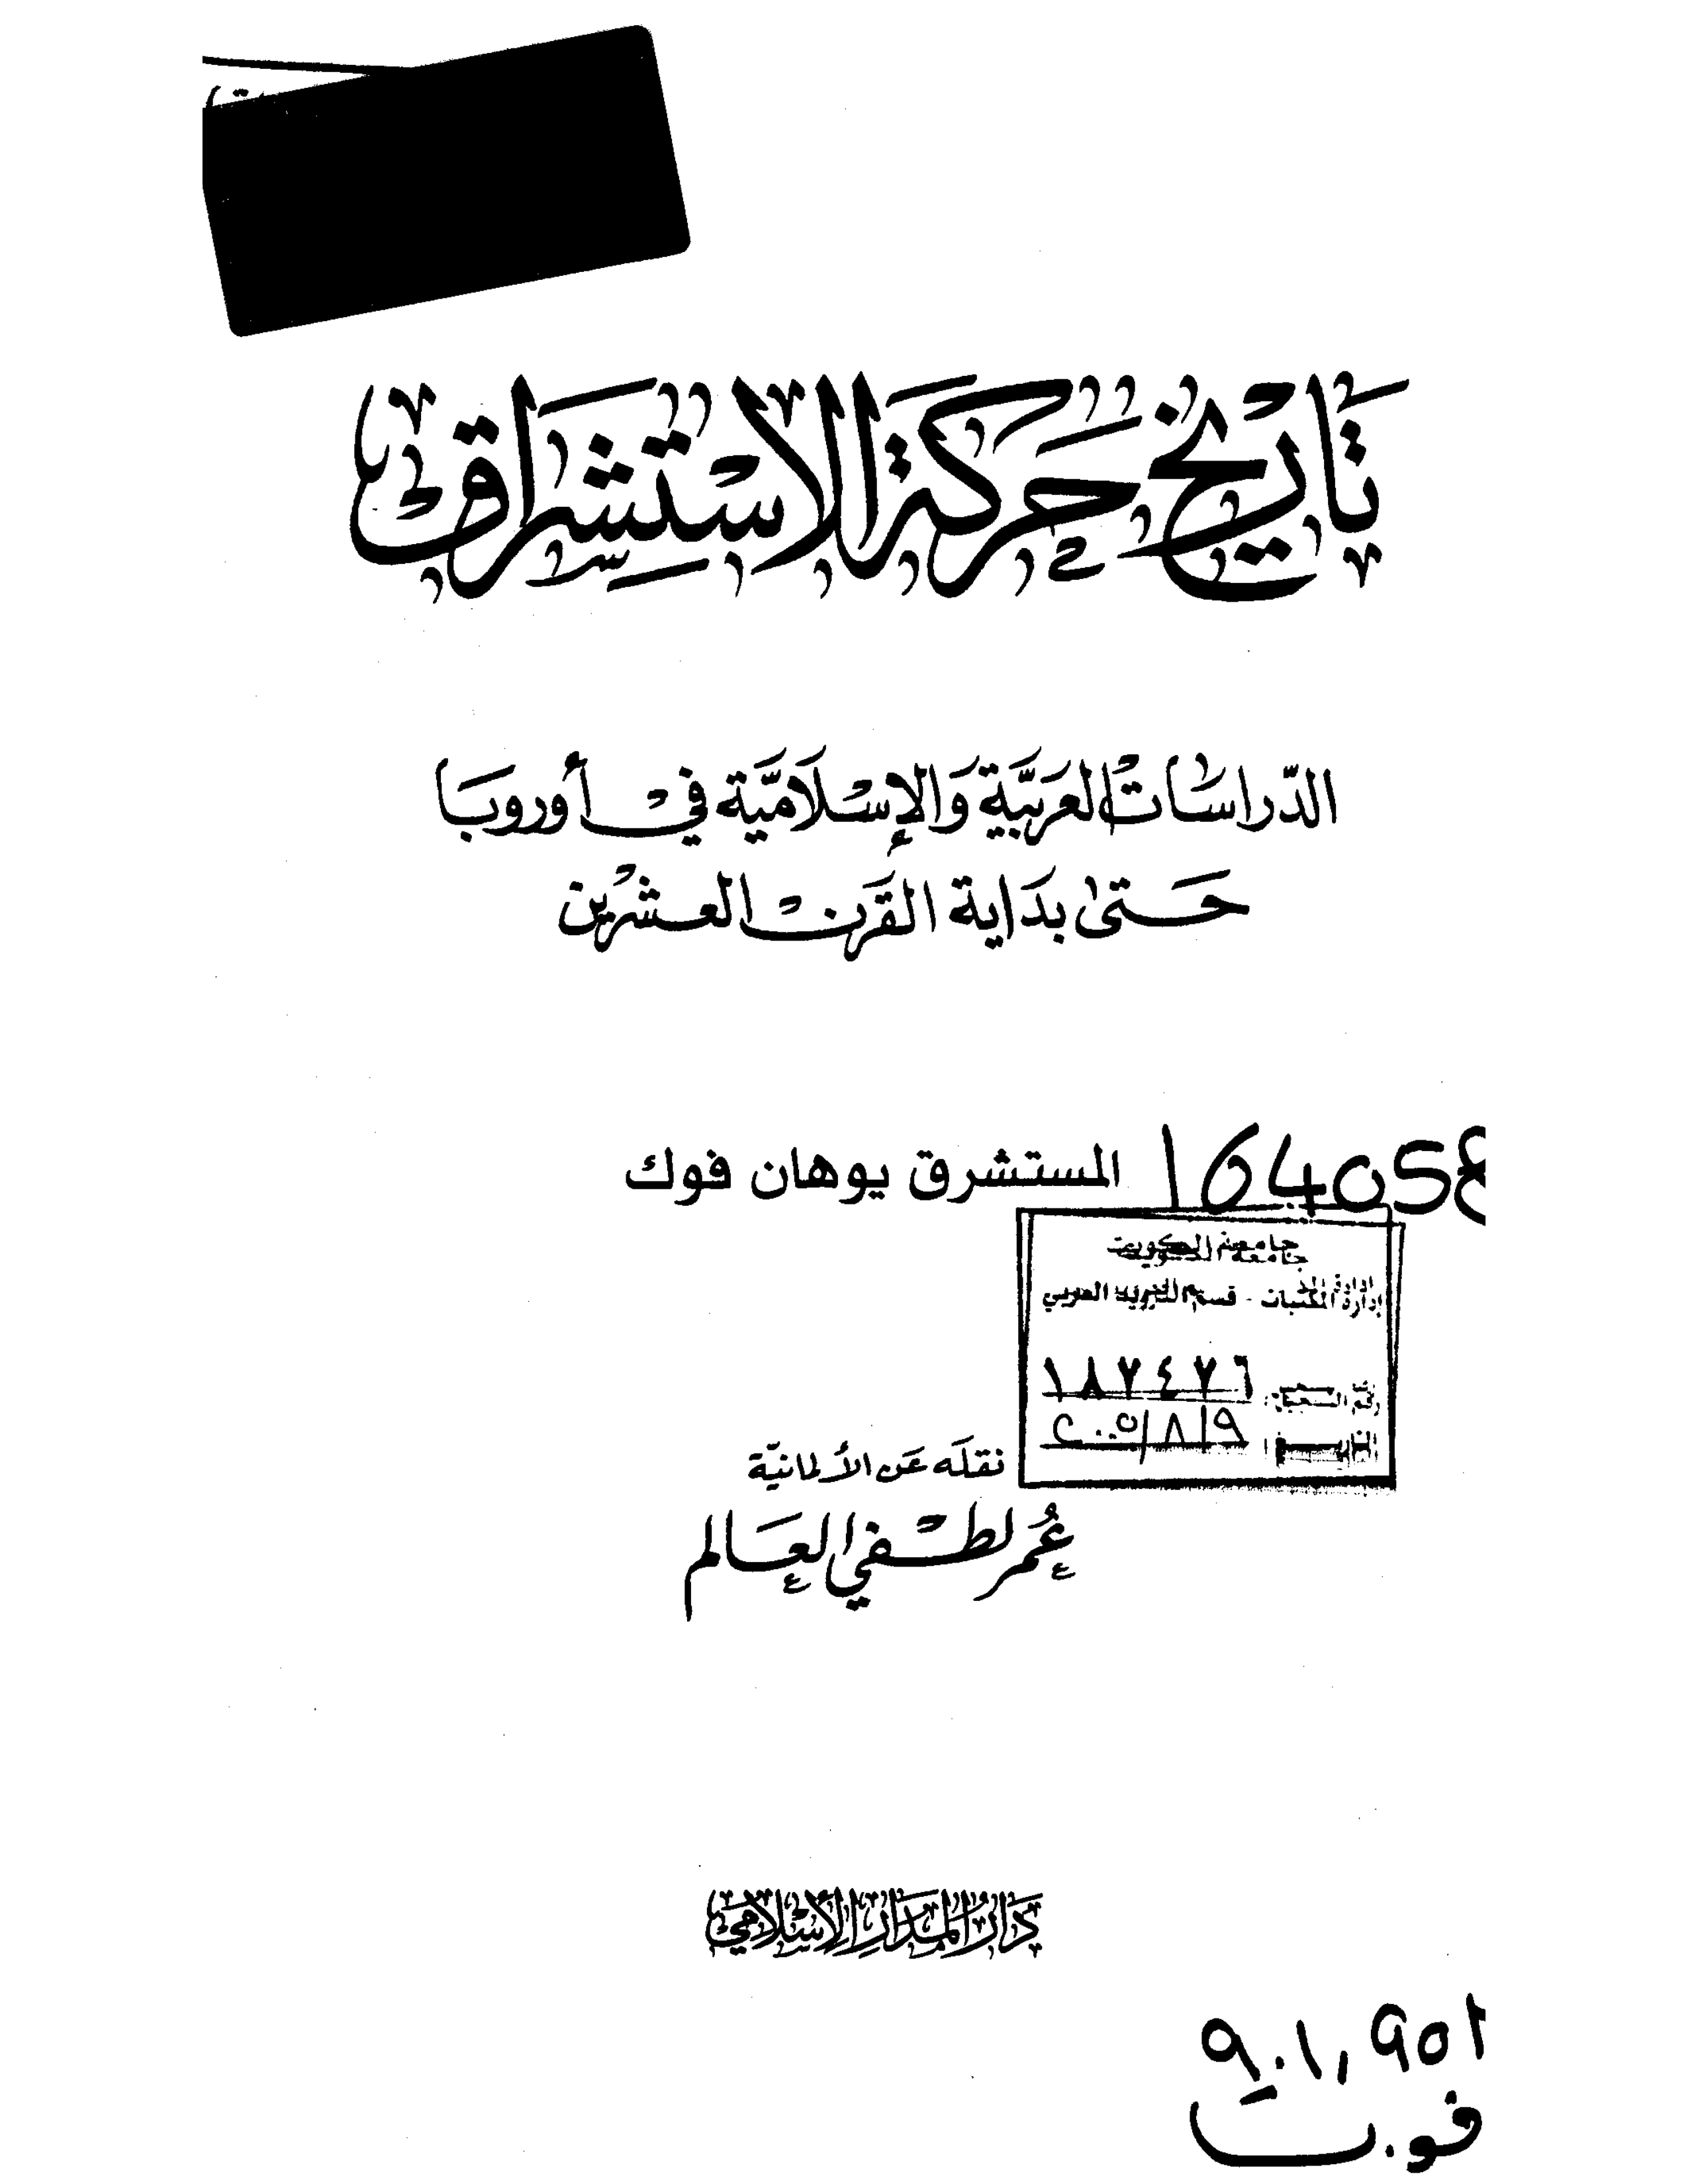 تاريخ حركة الاستشراق
الدّراسات العربيّة والإسلاميّة في أوروبا
حتى بداية القرن العشرين
المستشرق يوهان فوك
164058
جامعة الكويت
إدارة المكتبات - قسم التزويد العربي
رقم التسجيل ١٨٧٤٧٦
٢٠٠٥/٨/٩
نقله عن الألمانيّة
عُمر لطفي العالم
دار المدار الإسلامي
٩٠١,٩٥٢
فو.ت